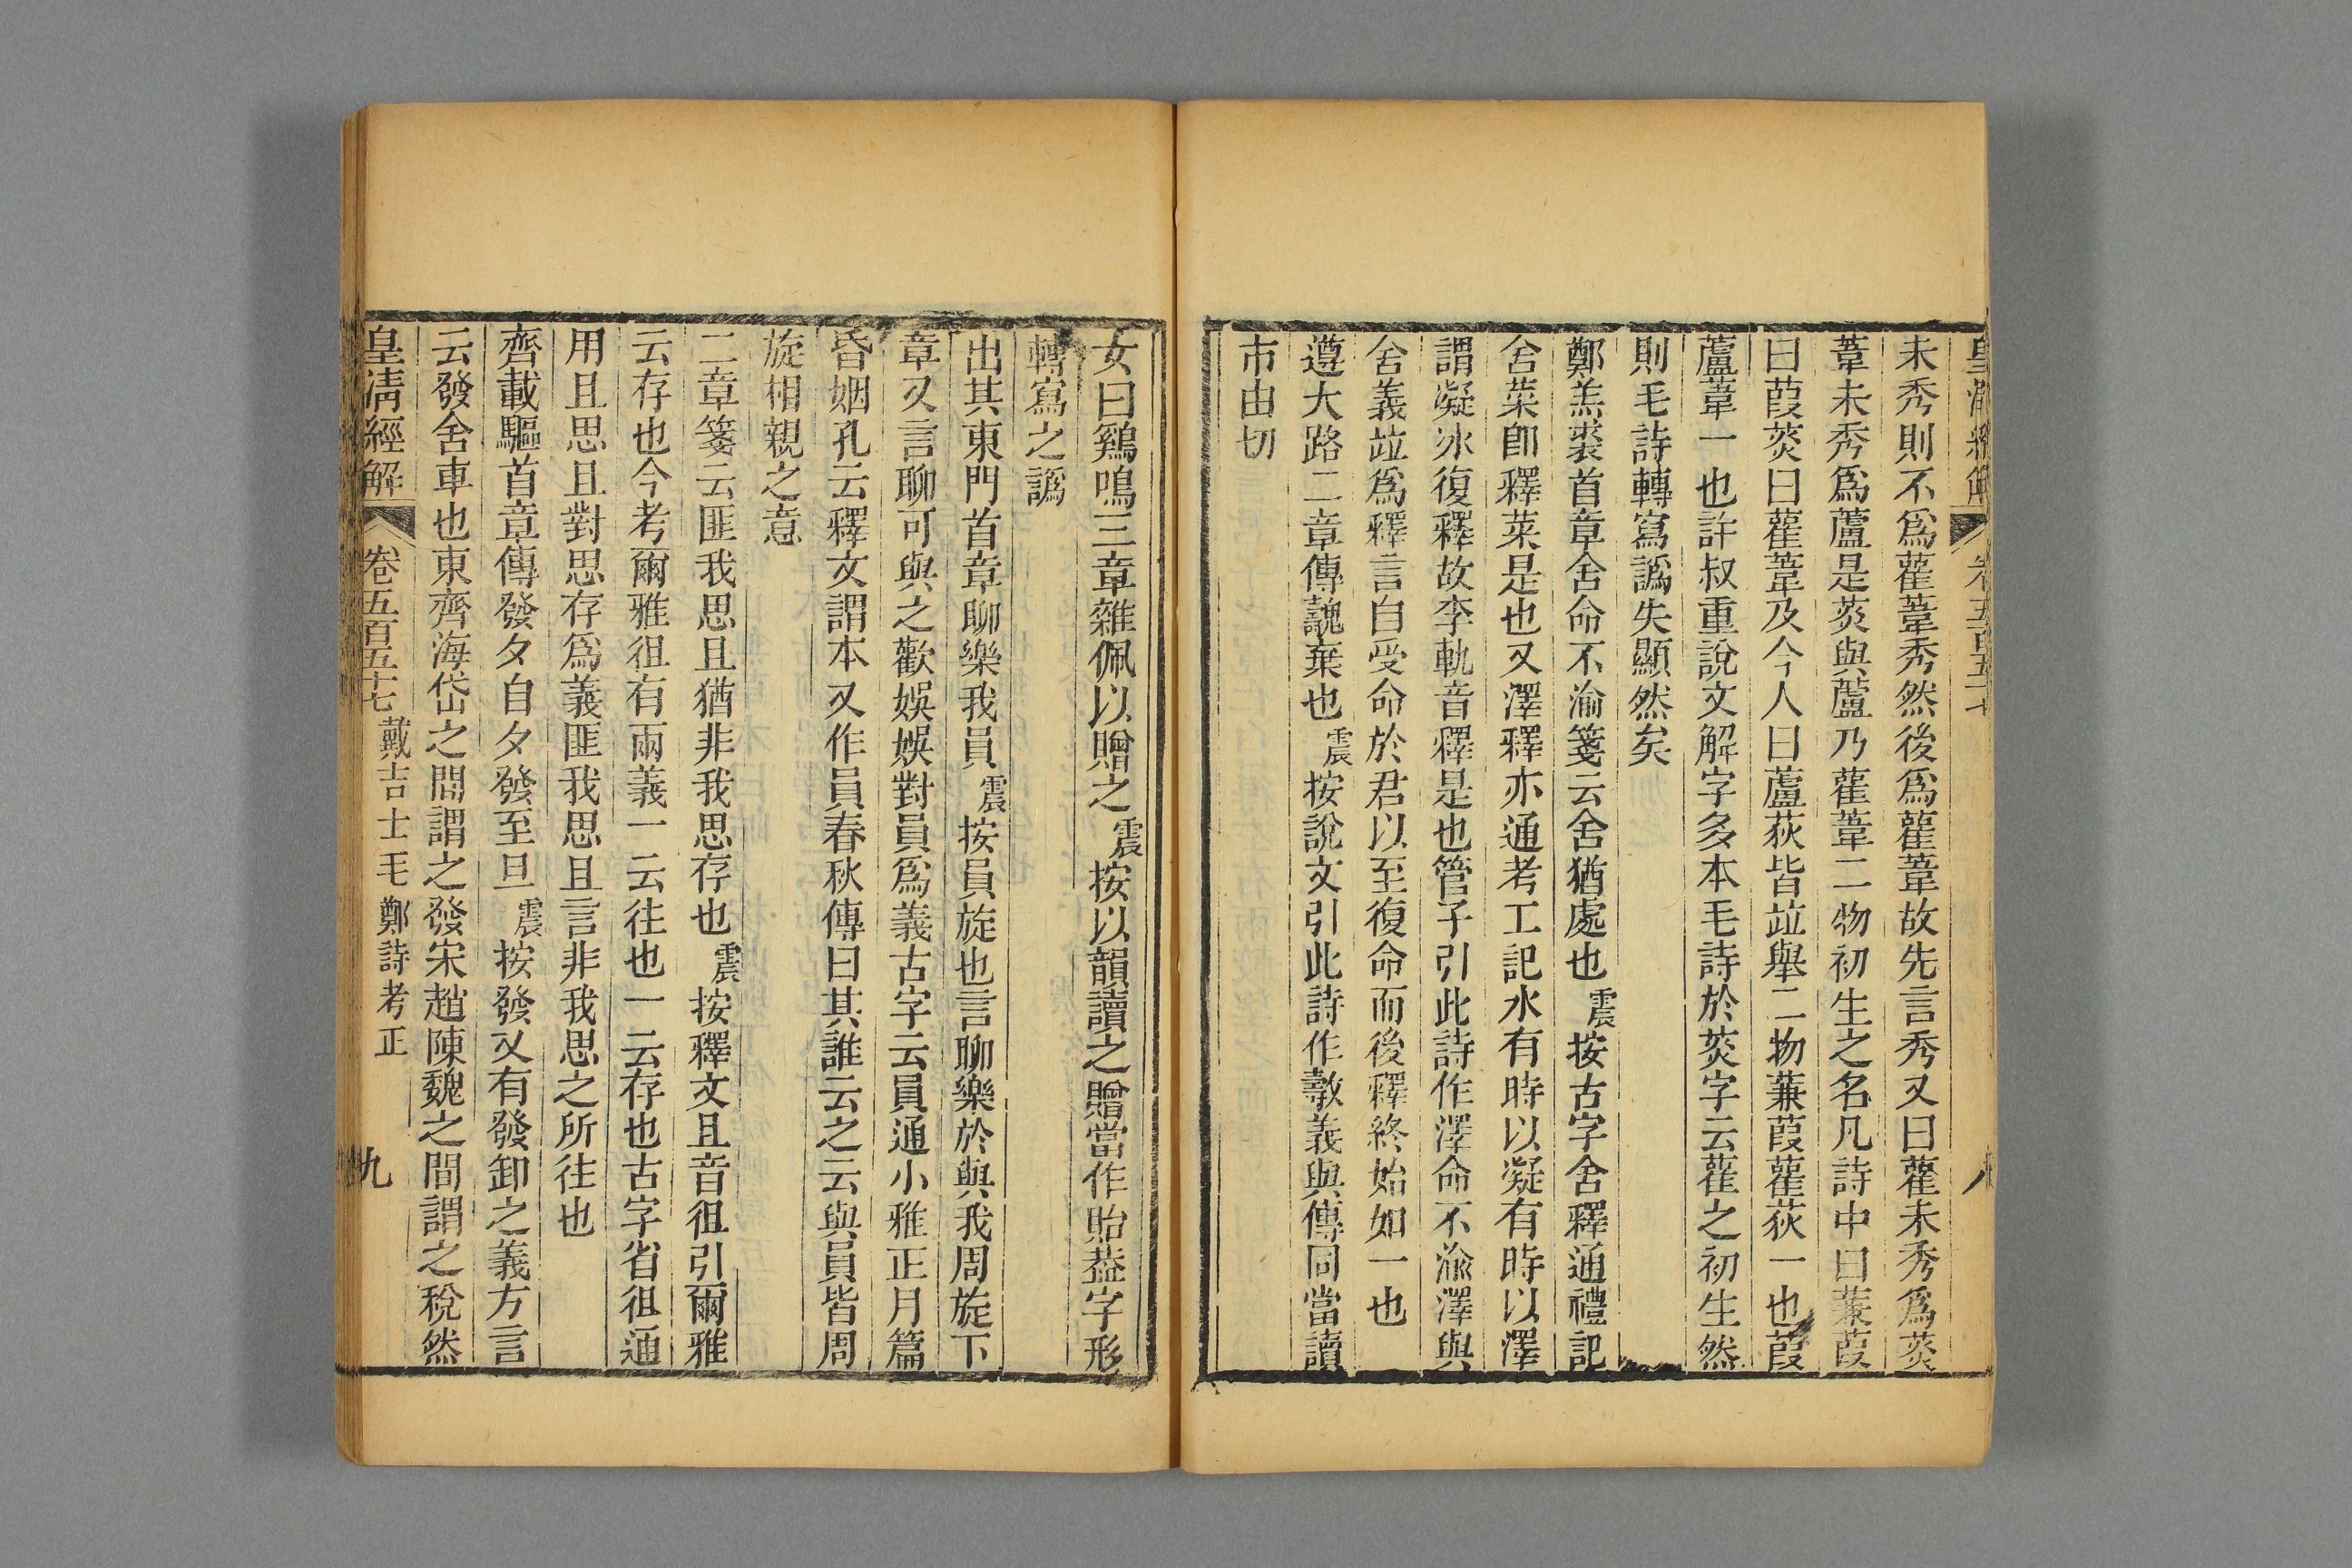 未秀則不爲雚葦秀然後爲雚葦故先言秀又曰雚未秀爲菼
葦未秀爲蘆是菼與蘆乃雚葦二物初生之名凡詩中曰蒹葭
曰葭菼曰雚葦及今人曰蘆荻皆竝舉二物蒹葭雚荻一也葭
蘆葦一也許叔重說文解字多本毛詩於菼字云雚之初生然
則毛詩轉寫譌失顯然矣
鄭羔裘首章舍命不渝箋云舍猶處也震按古字舍釋通禮記
舍菜卽釋菜是也又澤釋亦通考工記水有時以凝有時以澤
謂凝冰復釋故李軌音釋是也管子引此詩作澤命不渝澤與
舍義竝爲釋言自受命於君以至復命而後釋終始如一也
遵大路二章傳魗棄也震按說文引此詩作𢾭義與傳同當讀
市由切
女曰鷄鳴三章雜佩以贈之震按以韻讀之贈當作貽葢字形
轉寫之譌
出其東門首章聊樂我員震按員旋也言聊樂於與我周旋下
章又言聊可與之歡娛娛對員爲義古字云員通小雅正月篇
昏姻孔云釋文謂本又作員春秋傳曰其誰云之云與員皆周
旋相親之意
二章箋云匪我思且猶非我思存也震按釋文且音徂引爾雅
云存也今考爾雅徂有兩義一云往也一云存也古字省徂通
用且思且對思存爲義匪我思且言非我思之所往也
齊載驅首章傳發夕自夕發至旦震按發又有發卸之義方言
云發舍車也東齊海岱之間謂之發宋趙陳魏之間謂之稅然
皇淸經解 卷五百五十七 戴吉士毛鄭詩考正 九